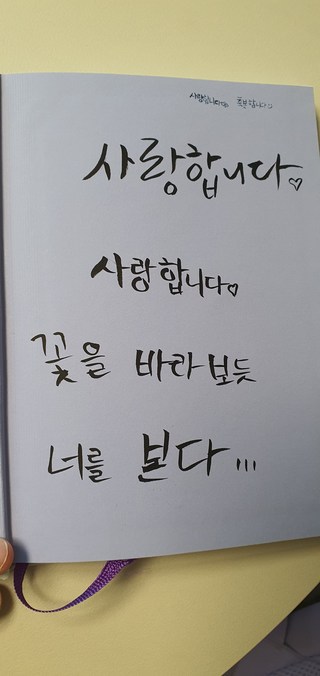 사랑합니다♡
사랑합니다♡
꽃을 바라보듯
너를 본다...